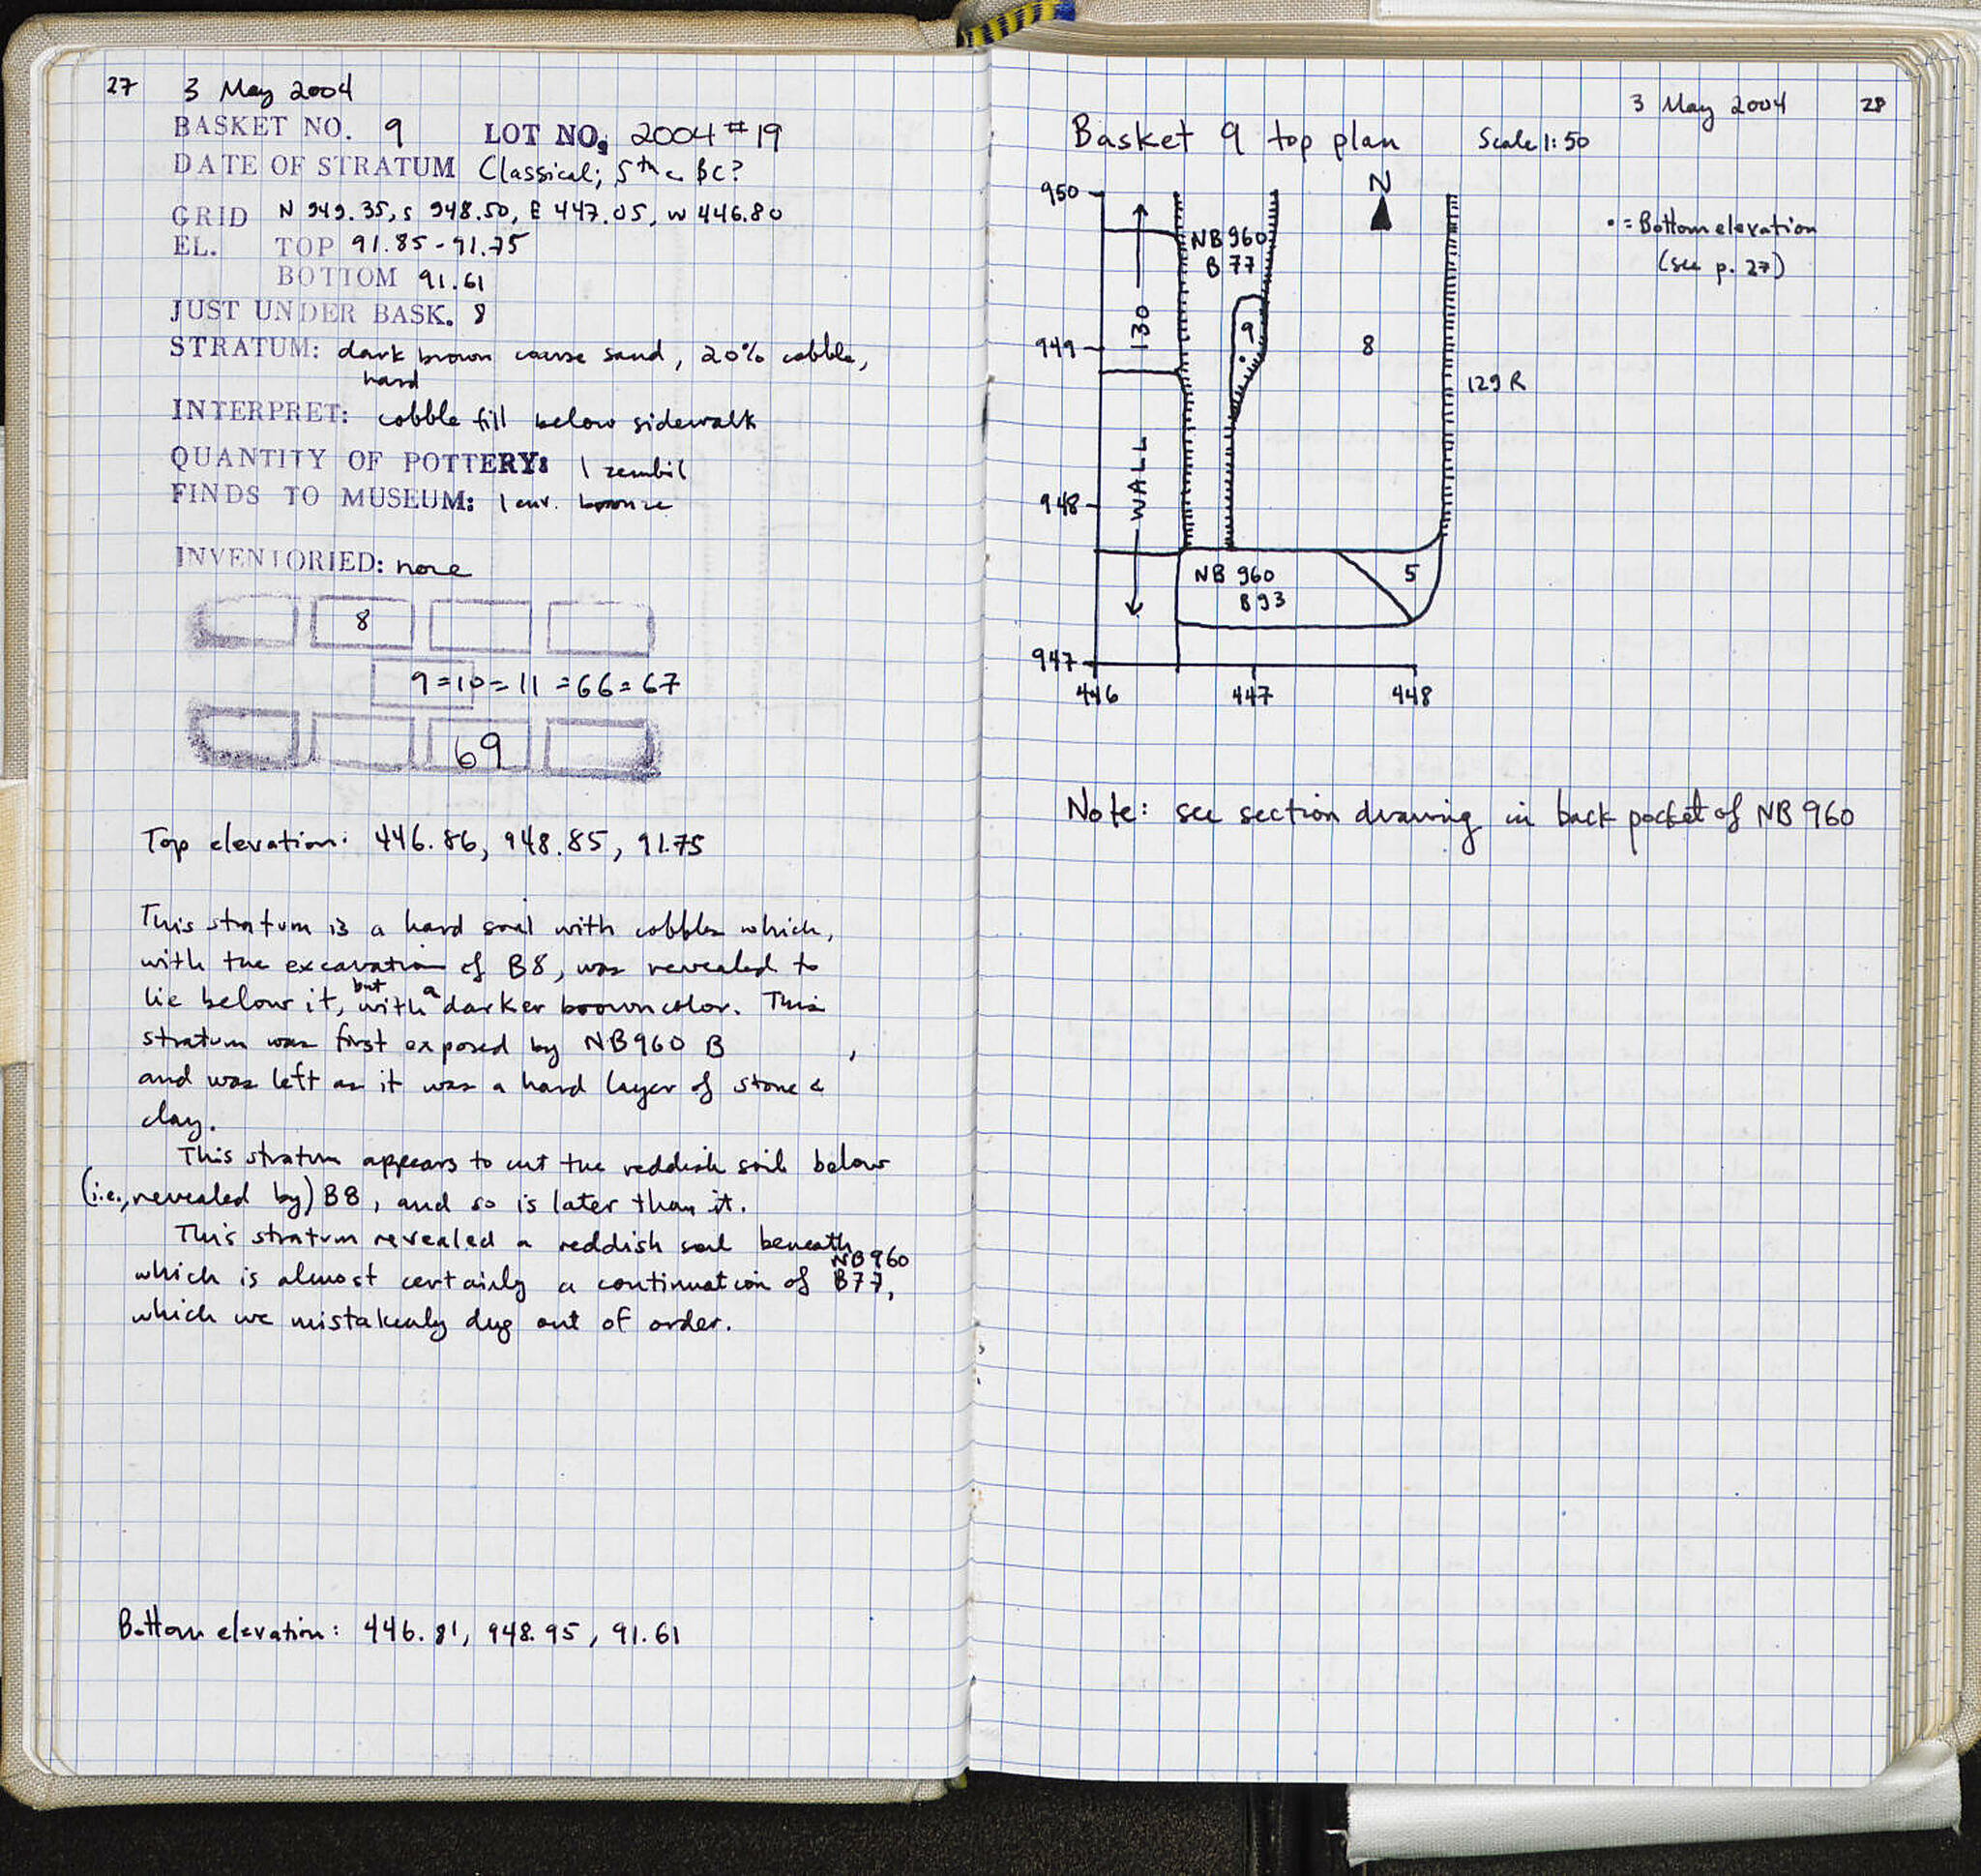 27 3 May 2004
BASKET NO. 9 LOT NO. 2004 #19
DATE OF STRATUM Classical; 5th c BC?
GRID N 949.35, S 948.50, E 447.05, W 446.80
EL. TOP 91.85-91.75
BOTTOM 91.61
JUST UNDER BASK. 8
STRATUM: dark brown coarse sand, 20% cobble,
hard
INTERPRET: cobble fill below sidewalk
QUANTITY OF POTTERY: 1 zembil
FINDS TO MUSEUM: 1 env. bronze
INVENTORIED: none
8
9=10=11=66=67
69
Top elevation: 446.86, 948.85, 91.75
This stratum is a hard soil with cobbles which,
with the excavation of B8, was revealed to
lie below it, but with a darker brown color. This
stratum was first exposed by NB960 B ,
and was left as it was a hard layer of stone &
clay.
This stratum appears to cut the reddish soil below
(i.e., revealed by) B8, and so is later than it.
This stratum revealed a reddish soil beneath
which is almost certainly a continuation of NB960 B77,
which we mistakenly dug out of order.
Bottom elevation: 446.81, 948.95, 91.61
3 May 2004 28
Basket 9 top plan Scale 1:50
950
N
NB 960
B 77
•= Bottom elevation
(see p. 27)
130
9
949
8
129 R
948
WALL
NB 960
B 93
5
947
446 447 448
Note: see section drawing in back pocket of NB 960